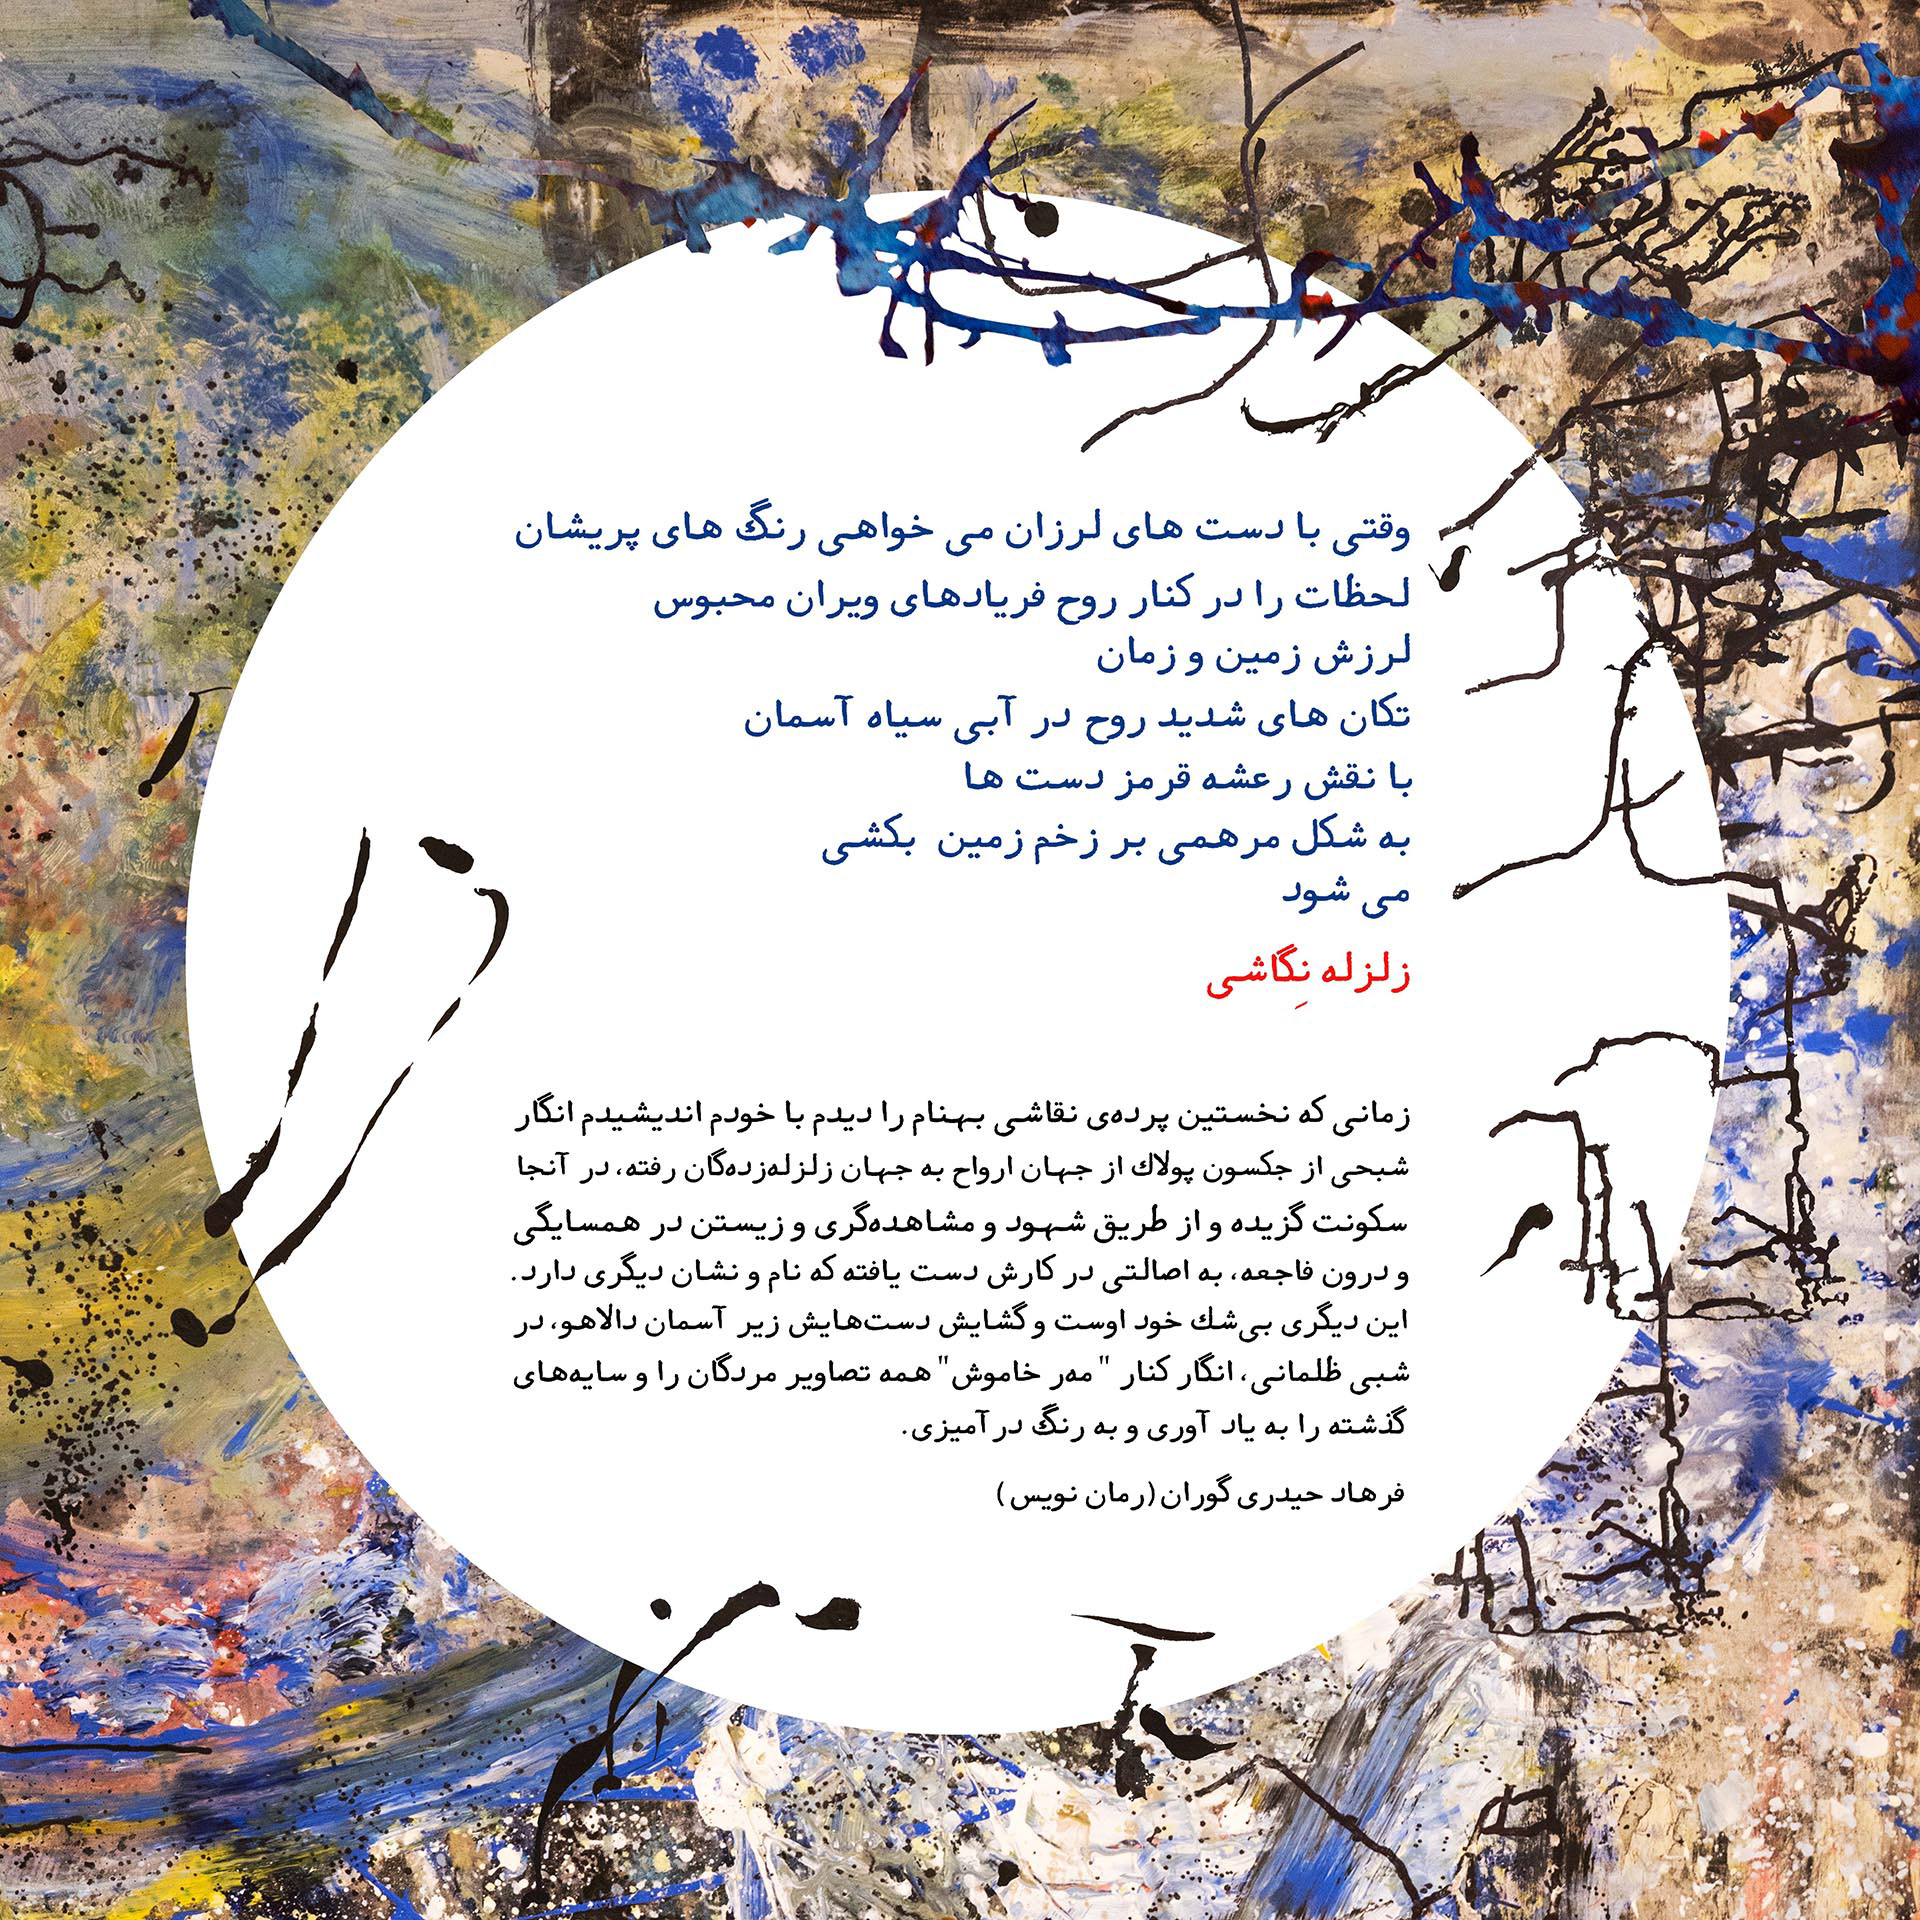 وقتی با دست های لرزان می خواهی رنگ های پریشان
لحظات را در کنار روح فریادهای ویران محبوس
لرزش زمین و زمان
تکان های شدید روح در آبی سیاه آسمان
با نقش رعشه قرمز دست ها
به شکل مرهمی بر زخم زمین بکشی
می شود
زلزله نِگاشی
زمانی که نخستین پرده‌ی نقاشی بهنام را دیدم با خودم اندیشیدم انگار
شبحی از جکسون پولاك از جهان ارواح به جهان زلزله‌زده‌گان رفته، در آنجا
سکونت گزیده و از طریق شهود و مشاهده‌گری و زیستن در همسایگی
و درون فاجعه، به اصالتی در کارش دست یافته که نام و نشان دیگری دارد.
این دیگری بی‌شك خود اوست و گشایش دست‌هایش زیر آسمان دالاهو، در
شبی ظلمانی، انگار کنار " مه‌ر خاموش" همه تصاویر مردگان را و سایه‌های
گذشته را به یاد آوری و به رنگ در آمیزی.
فرهاد حیدری گوران (رمان نویس)